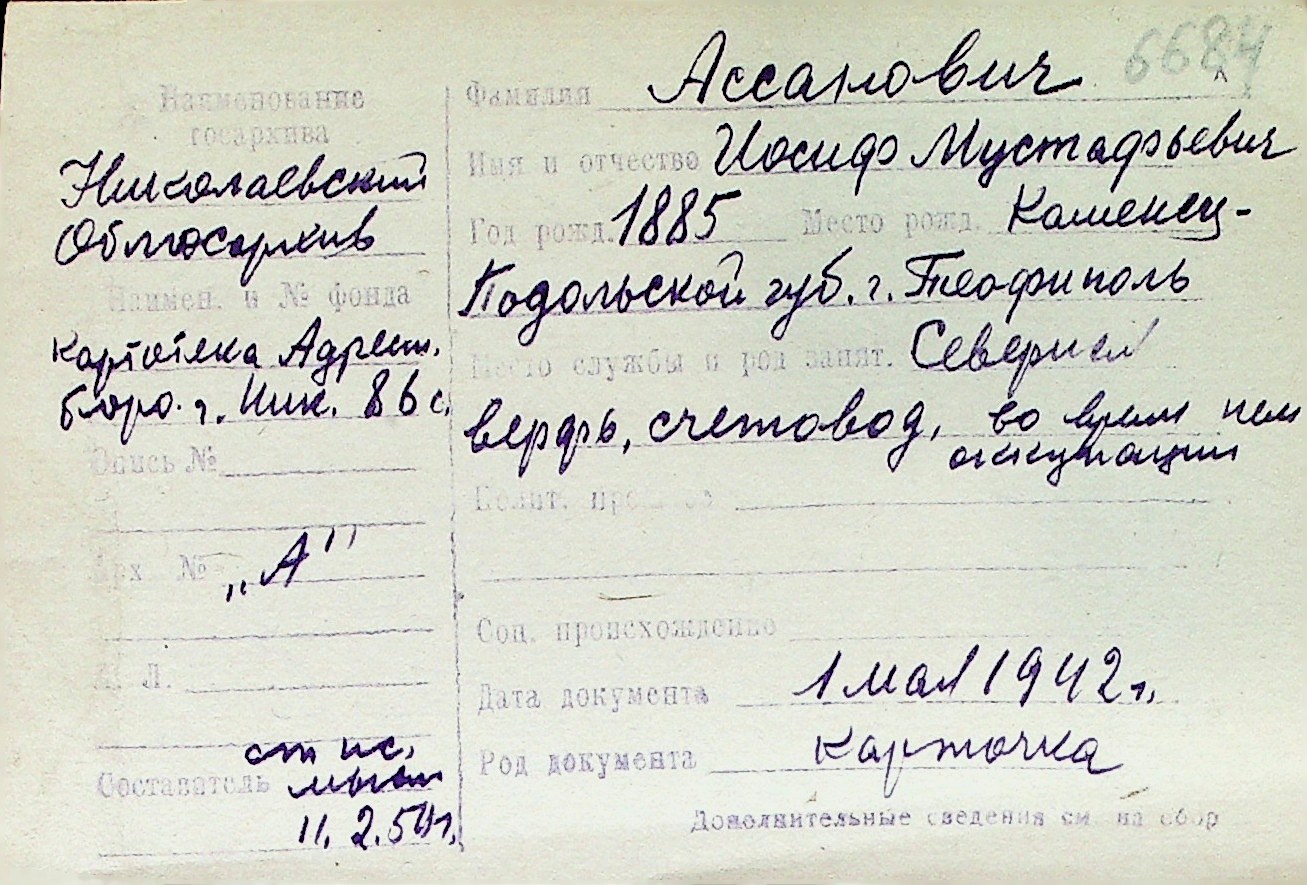 6684
Наименование
госархива
Николаевский
Облгосархив
Наимен. и № фонда
картотека Адресн.
бюро. г. Ник. 86 с.
Опись №
Арх №
„А"
Л.
ст ис.
Составитель
11. 2. 54 г.
Фамилия Ассанович
Имя и отчество Иосиф Мустафьевич
Год рожд. 1885 Место рожд. Каменец-
Подольской губ. г. Теофиполь
Место службы и род занят. Северная
верфь, счетовод, во время нем
оккупации
Полит.
Соц. происхождение
Дата документа 1 мая 1942 г.
Род документа карточка
Дополнительные сведения см на обор